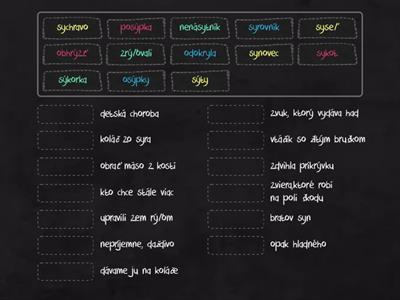 sychravo
posýpka
nenásytník
syrovník
syseľ
obhrýzť
zrýľovali
odokryla
synovec
sykot
sýkorka
osýpky
sýty
detská choroba
koláč zo syra
obrať mäso z kosti
kto chce stále viac
upravili zem rýľom
nepríjemne, daždivo
dávame ju na koláče
zvuk, ktorý vydáva had
vtáčik so žltým bruškom
zdvihla prikrývku
zviera,ktoré robí
na poli škodu
bratov syn
opak hladného